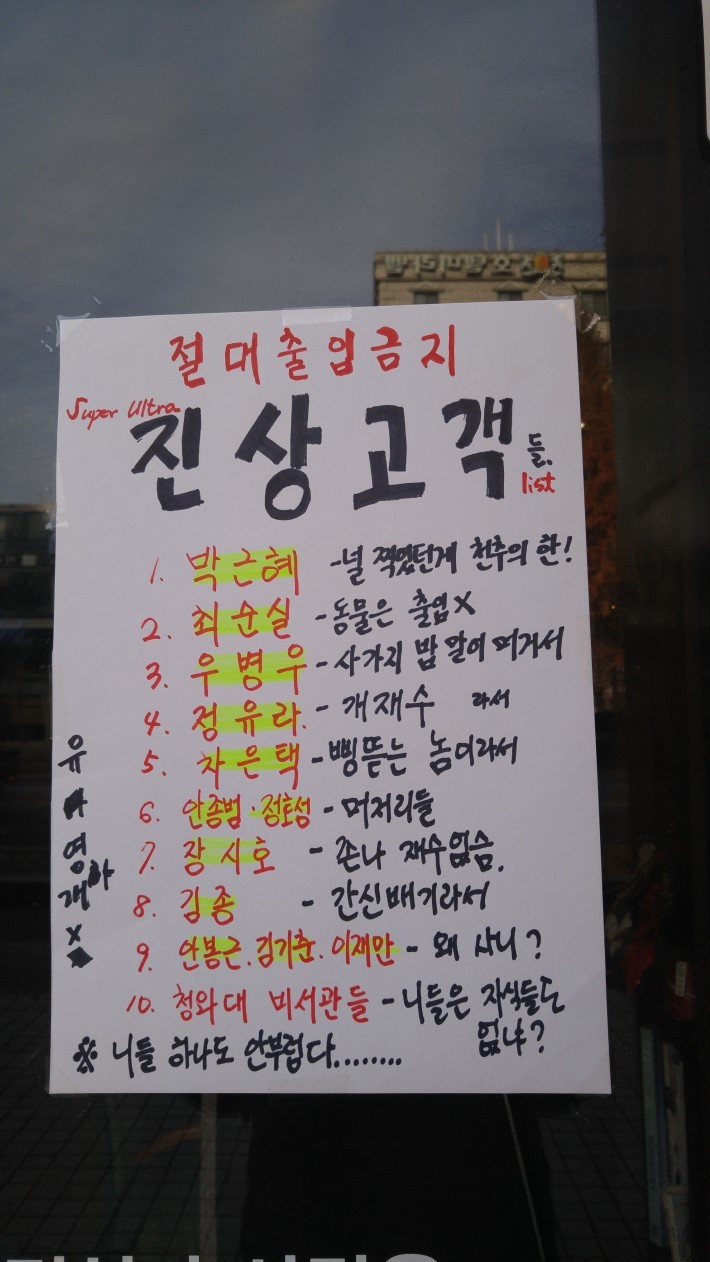 절대출입금지
Super Ultra
진상고객들.
list
1. 박근혜 - 널 찍었던게 천추의 한!
2. 최순실 - 동물은 출입X
3. 우병우 - 사가지 밥 말이 머거서
4. 정유라. - 개재수 라서
5. 차은택 - 삥뜯는 놈이라서
6. 안종범·정호성 - 머저리들
7. 장시호 - 존나 재수없슴.
8. 김종 - 간신배기라서
9. 안봉근. 김기춘. 이재만 - 왜 사니?
10. 청와대 비서관들 - 니들은 자식들도
없냐?
※ 니들 하나도 안부럽다........